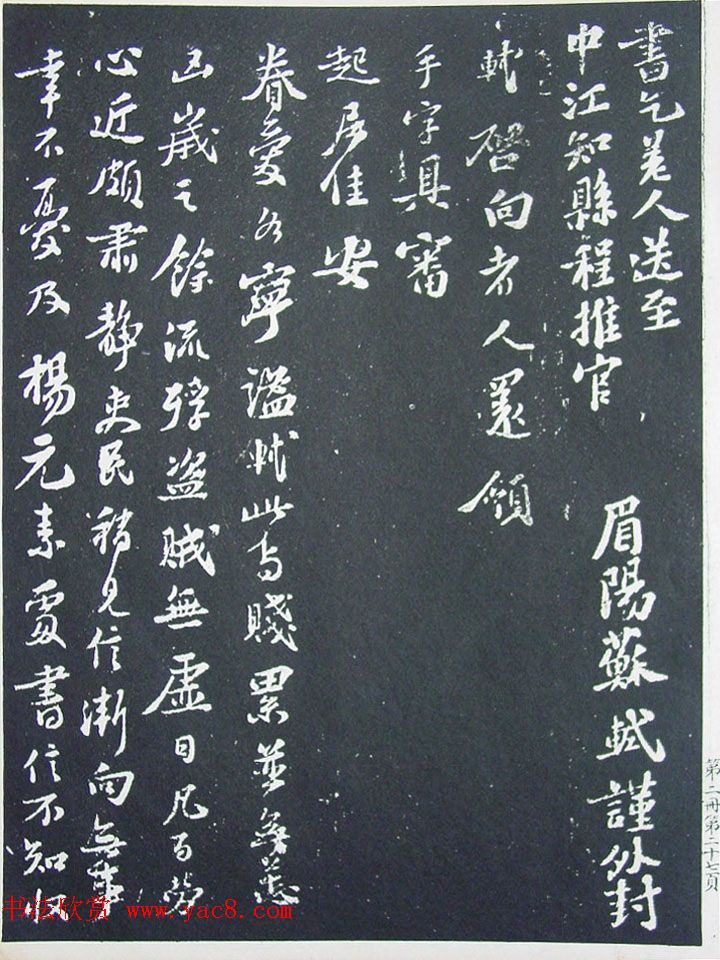 書乞差人送至
中江知縣程推官
眉陽蘇軾謹外封
軾啓向者人還領
手字具審
起居佳安
眷愛各寧謐軾此与賤累並無恙
凶嵗之餘流殍盜賊無虛日凡百勞
心近頗肅静吏民稍見信漸向無事
幸不憂及楊元素處書信不知
第二冊第二十七頁
书法欣赏 www.yac8.com